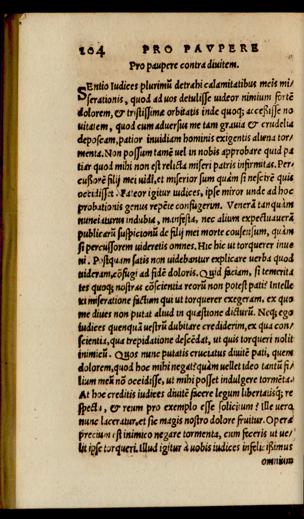 204 PRO PAVPERE
Pro paupere contra diuitem.
SEntio Iudices plurimũ detrahi calamitatibus meis mi/
serationis, quod ad uos detulisse uideor nimium fortẽ
dolorem, & tristissimæ orbitatis inde quoq; accessisse no
uitatem, quod cum aduersus me tam grauia & crudelia
deposcam, patior inuidiam hominis exigentis aliena tor/
menta. Non possum tamẽ uel in uobis approbare quid pa
tiar quod mihi non est relicta miseri patris infirmitas. Per/
cussorẽ filij mei uidi, et miserior sum quàm si nescirẽ quis
occidisset. Fateor igitur iudices, ipse miror unde ad hoc
probationis genus repẽte confugerim. Venerã tanquàm
nunciaturus indubia, manifesta, nec alium expectauerã
publicarũ suspicionũ de filij mei morte consensum, quàm
si percussorem uideretis omnes. Hic hic ut torquerer inue
ni. Postquam satis non uidebantur explicare uerba quod
uideram, cõfugi ad fidẽ doloris. Quid faciam, si temerita
tes quoq; nostras cõscientia reorũ non potest pati? Intelle
xi miseratione factum qui ut torquerer exegeram, ex quo
me diues non putat aliud in quæstione dicturũ. Neq; ego
iudices quenquã uestrũ dubitare crediderim, ex qua con/
scientia, qua trepidatione descẽdat, ut quis torqueri nolit
inimicũ. Quos nunc putatis cruciatus diuitẽ pati, quem
dolorem, quod hoc mihi negat? quàm uellet ideo tantũ fi/
lium meũ nõ occidisse, ut mihi posset indulgere tormẽta.
At hoc creditis iudices diuitẽ facere legum libertatisq; re
spectu, & reum pro exemplo esse solicitum? Ille uero
nunc laceratur, et sic magis nostro dolore fruitur. Operæ
precium est inimico negare tormenta, cum feceris ut ue/
lit ipse torqueri. Illud igitur à uobis iudices infelicissimus
omnium